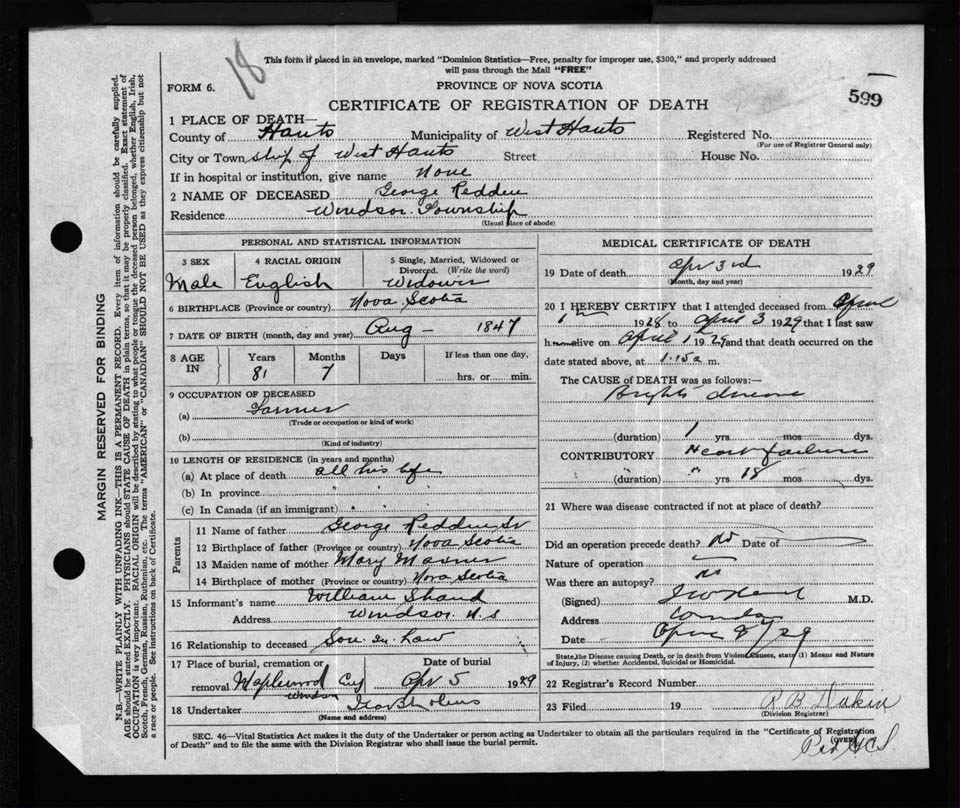 18
This form if placed in an envelope, marked "Dominion Statistics—Free, penalty for improper use, $300," and properly addressed
will pass through the Mail "FREE"
FORM 6.
PROVINCE OF NOVA SCOTIA
599
CERTIFICATE OF REGISTRATION OF DEATH
1 PLACE OF DEATH—
County of Hants Municipality of West Hants Registered No.
(For use of Registrar General only)
City or Town ship of West Hants Street House No.
If in hospital or institution, give name None
2 NAME OF DECEASED George Redden
Residence Windsor Township
(Usual place of abode)
PERSONAL AND STATISTICAL INFORMATION
3 SEX 4 RACIAL ORIGIN 5 Single, Married, Widowed or
Divorced. (Write the word)
Male English Widower
6 BIRTHPLACE (Province or country) Nova Scotia
7 DATE OF BIRTH (month, day and year) Aug — 1847
8 AGE IN Years Months Days If less than one day,
81 7 hrs. or min.
9 OCCUPATION OF DECEASED
(a) Farmer
(Trade or occupation or kind of work)
(b)
(Kind of industry)
10 LENGTH OF RESIDENCE (in years and months)
(a) At place of death all his life
(b) In province " "
(c) In Canada (if an immigrant) " "
Parents
11 Name of father George Redden Sr
12 Birthplace of father (Province or country) Nova Scotia
13 Maiden name of mother Mary
14 Birthplace of mother (Province or country) Nova Scotia
15 Informant's name William Shand
Address Windsor N.S
16 Relationship to deceased Son in Law
17 Place of burial, cremation or Date of burial
removal Maplewood Cry Apr 5 1929
Windsor
18 Undertaker
(Name and address)
MEDICAL CERTIFICATE OF DEATH
19 Date of death Apr 3rd 1929
(Month, day and year)
20 I HEREBY CERTIFY that I attended deceased from April
1 1928 to April 3 1929 that I last saw
h alive on April 1 1929 and that death occurred on the
date stated above, at 1.15 a m.
The CAUSE OF DEATH was as follows:—
Brights disease
(duration) 1 yrs mos dys.
CONTRIBUTORY Heart failure
(duration) " " yrs 18 mos dys.
21 Where was disease contracted if not at place of death?
Did an operation precede death? No Date of
Nature of operation
Was there an autopsy? no
(Signed) M.D.
Address
Date April 8/29
State the Disease causing Death, or in death from Violent Causes, state (1) Means and Nature
of Injury, (2) whether Accidental, Suicidal or Homicidal.
22 Registrar's Record Number
23 Filed 19 R B Dakin
(Division Registrar)
SEC. 46—Vital Statistics Act makes it the duty of the Undertaker or person acting as Undertaker to obtain all the particulars required in the "Certificate of Registration
of Death" and to file the same with the Division Registrar who shall issue the burial permit.
(OVER)
MARGIN RESERVED FOR BINDING
N.B.—WRITE PLAINLY WITH UNFADING INK—THIS IS A PERMANENT RECORD. Every item of information should be carefully supplied.
AGE should be stated EXACTLY. PHYSICIANS should STATE CAUSE OF DEATH in plain terms, so that it may be properly classified. Exact statement of
OCCUPATION is very important. RACIAL ORIGIN will be described by stating to what people or tongue the deceased person belonged, whether English, Irish,
Scotch, French, German, Russian, Ruthenian, etc. The terms "AMERICAN" or "CANADIAN" SHOULD NOT BE USED as they express citizenship but not
a race or people. See instructions on back of Certificate.